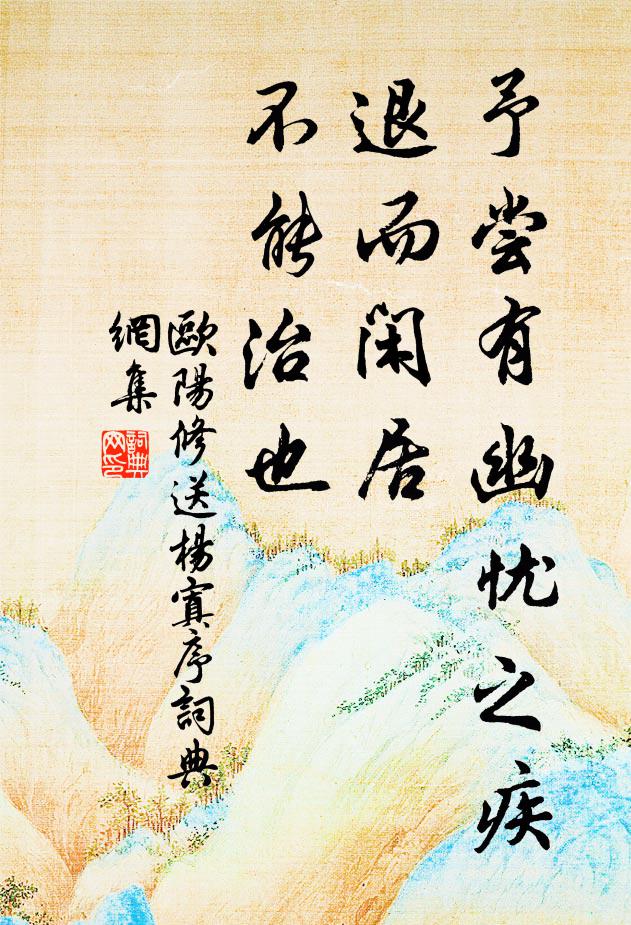 予尝有幽忧之疾
退而闲居
不能治也
歐陽修送楊寘序詞典
網集
詞典
网印